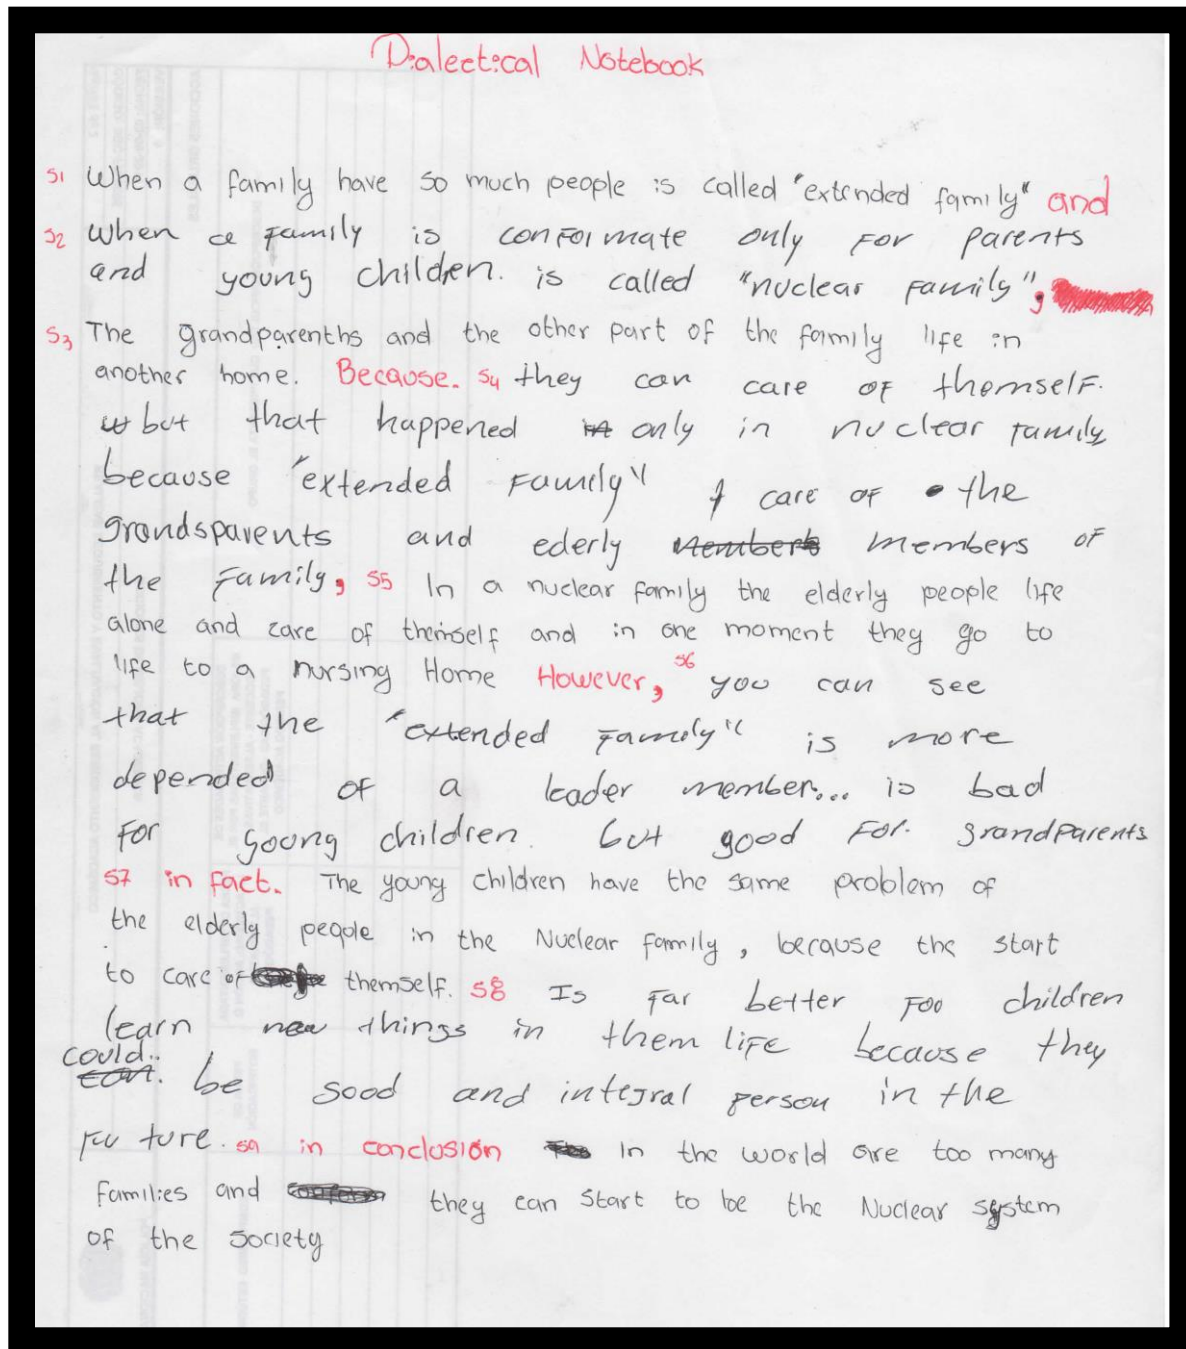 Dialectical Notebook
S1 When a family have so much people is called "extended family" and
S2 When a family is conformate only for parents
and young children. is called "nuclear family",
S3 The grandparenths and the other part of the family life in
another home. Because. S4 they can care of themself.
but that happened only in nuclear family
because "extended Family" care of the
grandsparents and ederly members members of
the Family, S5 In a nuclear family the elderly people life
alone and care of themself and in one moment they go to
life to a nursing Home However, S6 you can see
that the "extended Family" is more
depended of a leader member... is bad
for yoong children. but good For. grandparents
S7 in fact. The young children have the same problem of
the elderly people in the Nuclear family, because the start
to care of themself. S8 Is Far better Foo children
learn new things in them life because they
could..
can. be good and integral person in the
Future. S9 in conclusion In the world are too many
families and they can start to be the Nuclear system
of the society